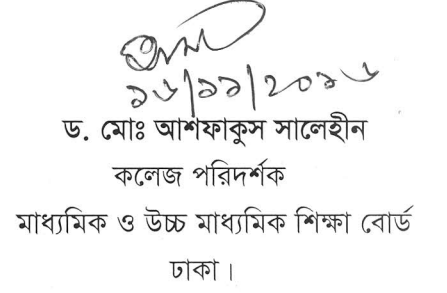 ১৬/১১/২০১৬
ড. মোঃ আশফাকুস সালেহীন
কলেজ পরিদর্শক
মাধ্যমিক ও উচ্চ মাধ্যমিক শিক্ষা বোর্ড
ঢাকা।